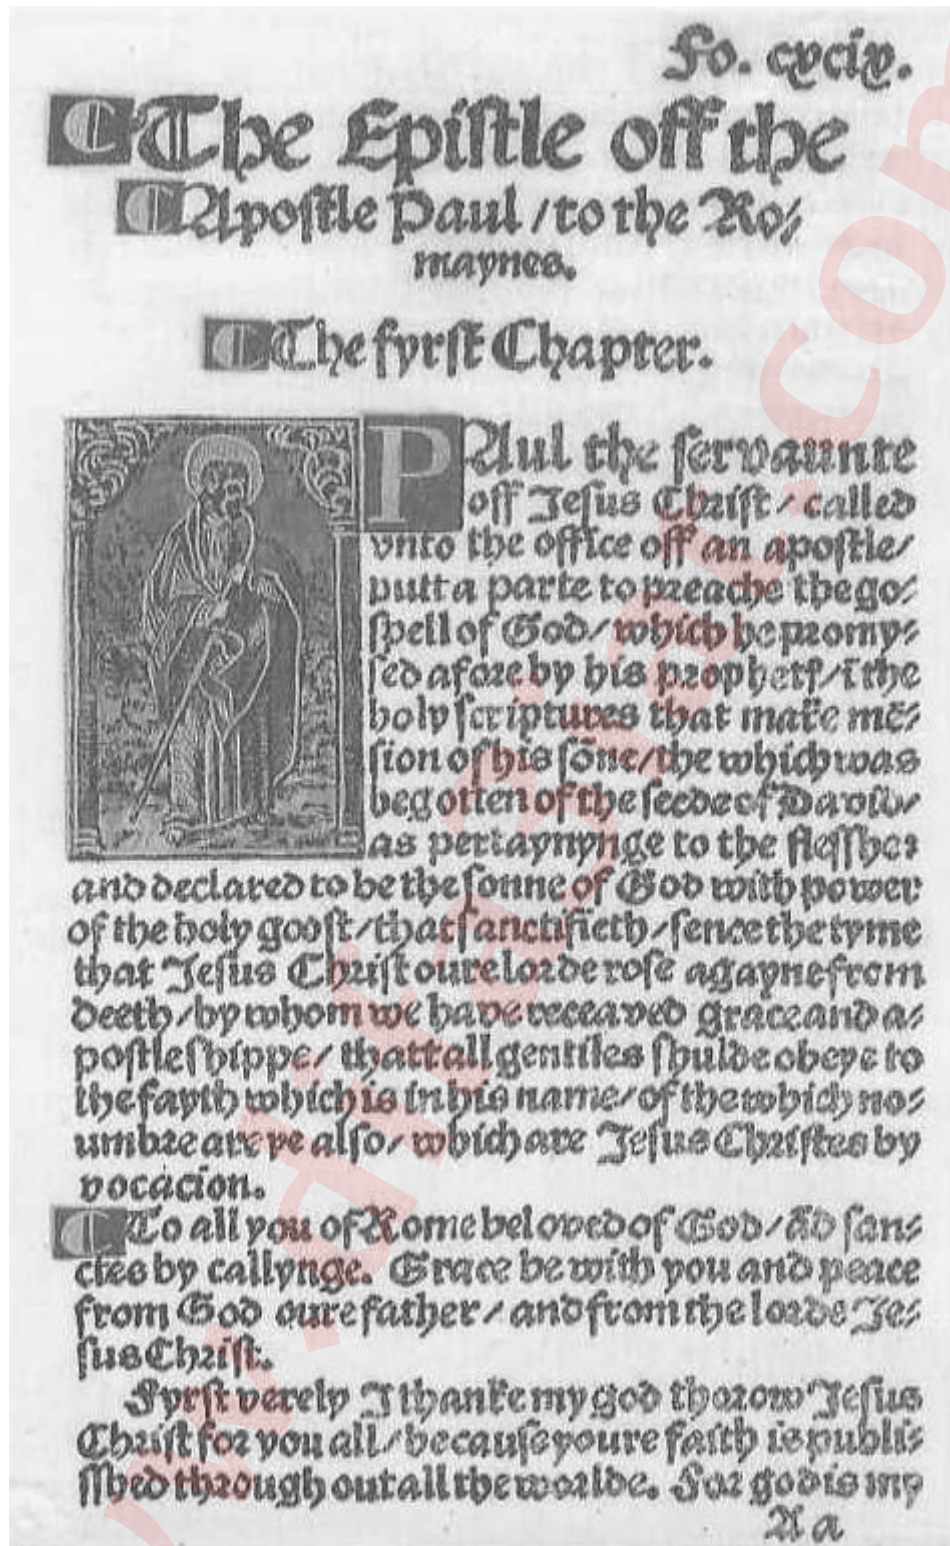 Fo. cxcix.
The Epistle off the
Apostle Paul / to the Ro⸗
maynes.
The fyrst Chapter.
PAul the servaunte
off Jesus Christ / called
vnto the office off an apostle /
putt a parte to preache the go⸗
spell of God / which he promy⸗
sed afore by his prophetꝭ / ī the
holy scriptures that make mē⸗
sion of his sōne / the which was
begotten of the seede of David /
as pertaynynge to the flesshe:
and declared to be the sonne of God with power
of the holy goost / that sanctifieth / sence the tyme
that Jesus Christ oure lorde rose agayne from
deeth / by whom we have receaved grace and a⸗
postleshippe / thatt all gentiles shulde obeye to
the fayth which is in his name / of the which no⸗
umbre are ye also / which are Jesus Christes by
vocacion.
To all you of Rome beloved of God / ād sanc⸗
ctes by callynge. Grace be with you and peace
from God oure father / and from the lorde Je⸗
sus Christ.
Fyrst verely I thanke my god thorow Jesus
Christ for you all / because youre faith is publi⸗
sshed through out all the worlde. For god is my
A a